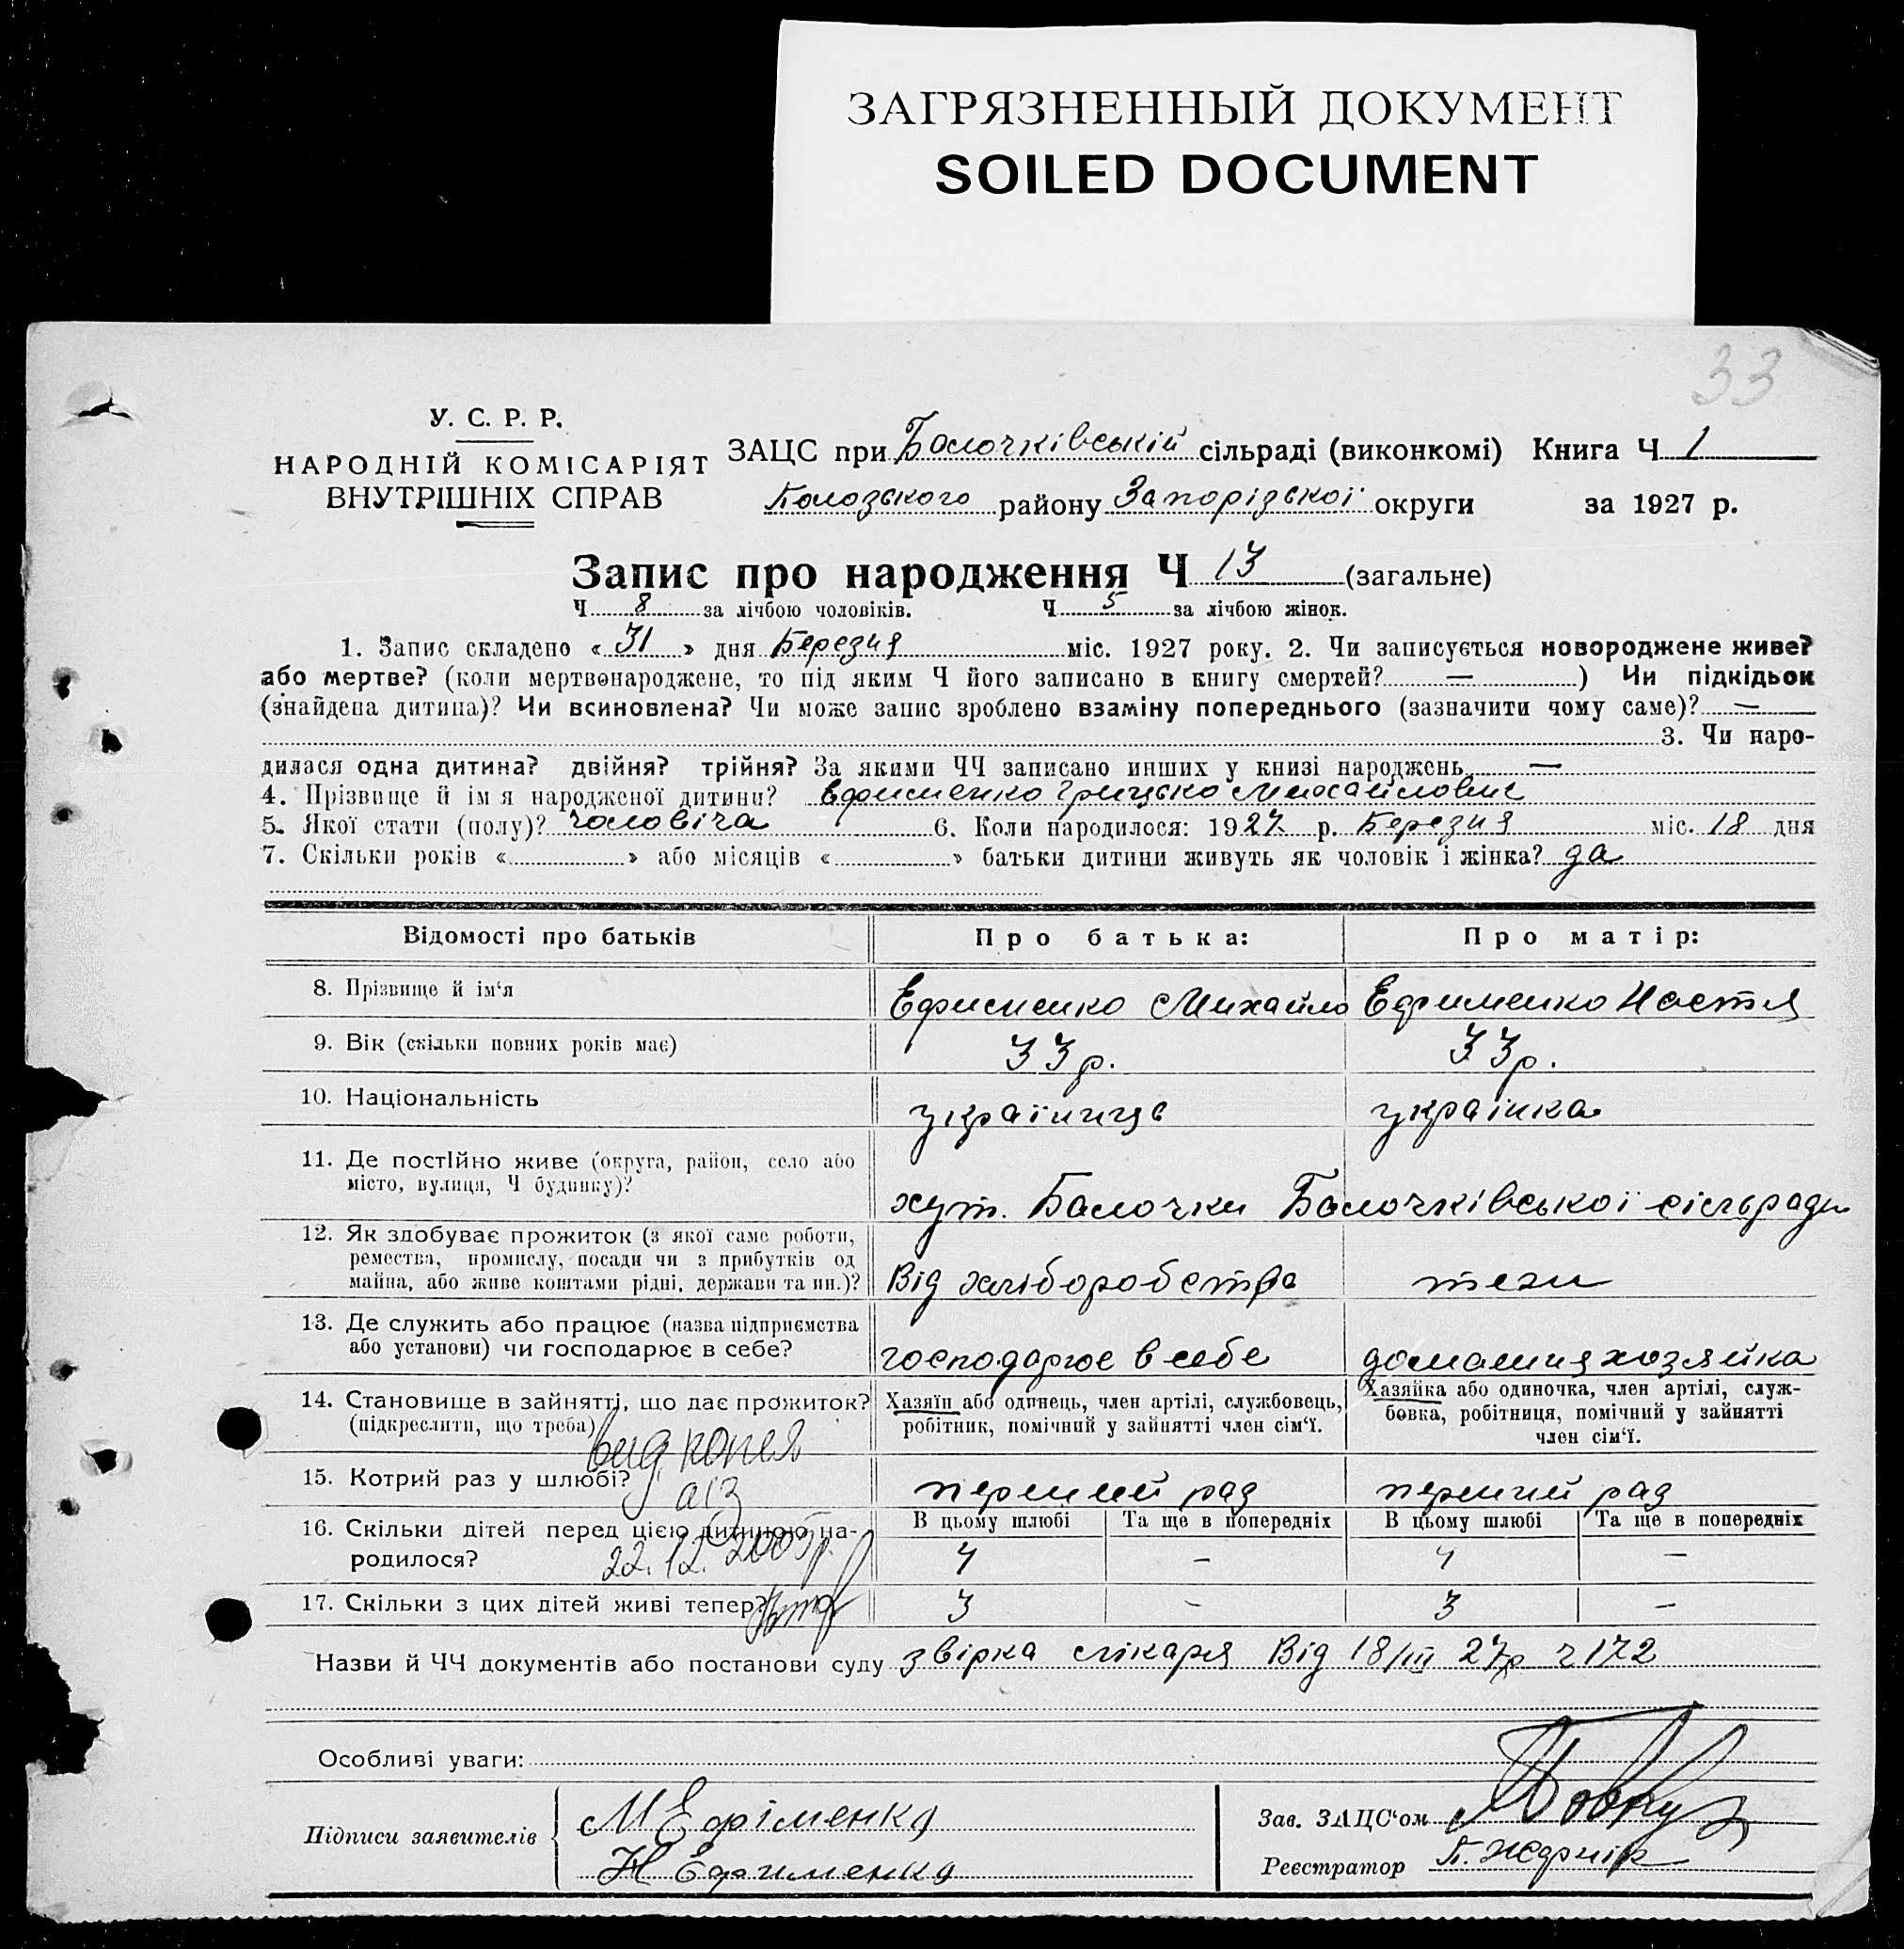 ЗАГРЯЗНЕННЫЙ ДОКУМЕНТ
SOILED DOCUMENT
33
У. С. Р. Р.
НАРОДНІЙ КОМІСАРІЯТ
ВНУТРІШНІХ СПРАВ
ЗАЦС при Балочківській сільраді (виконкомі) Книга Ч 1
району Запорізської округи за 1927 р.
Запис про народження Ч 13 (загальне)
Ч 8 за лічбою чоловіків. Ч 5 за лічбою жінок.
1. Запис складено « 31 » дня Березня міс. 1927 року. 2. Чи записується новороджене живе?
або мертве? (коли мертвонароджене, то під яким Ч його записано в книгу смертей? — ) Чи підкідьок
(знайдена дитина)? Чи всиновлена? Чи може запис зроблено взаміну попереднього (зазначити чому саме)? —
3. Чи наро-
дилася одна дитина? двійня? трійня? За якими ЧЧ записано инших у книзі народжень —
4. Прізвище й імя народженої дитини? Ефименко Грицько Михайлович
5. Якої стати (полу)? чоловіча 6. Коли народилося: 1927 р. Березня міс. 18 дня
7. Скільки років « » або місяців « » батьки дитини живуть як чоловік і жінка? да
Відомості про батьків Про батька: Про матір:
8. Прізвище й ім‘я Ефименко Михайло Ефименко Настя
9. Вік (скільки повних років має) 33 р. 33 р.
10. Національність українця українка
11. Де постійно живе (округа, район, село або
місто, вулиця, Ч будинку)? хут. Балочки Балочківської сільради
12. Як здобуває прожиток (з якої саме роботи,
ремества, промислу, посади чи з прибутків од
майна, або живе коштами рідні, держави та ин.)? Від хліборобства теж
13. Де служить або працює (назва підприємства
або установи) чи господарює в себе? господарює в себе домашня хозяйка
14. Становище в зайнятті, що дає прожиток?
(підкреслити, що треба)
Хазяїн або одинець, член артілі, службовець,
робітник, помічний у зайнятті член сім‘ї.
Хазяйка або одиночка, член артілі, служ-
бовка, робітниця, помічний у зайнятті
член сім‘ї.
15. Котрий раз у шлюбі? перший раз перший раз
16. Скільки дітей перед цією дитиною на-
родилося?
В цьому шлюбі Та ще в попередніх В цьому шлюбі Та ще в попередніх
4 — 4 —
22.12.2005р.
17. Скільки з цих дітей живі тепер? 3 - 3 —
Назви й ЧЧ документів або постанови суду звірка лікаря Від 18/III 27р ч 172
Особливі уваги:
Підписи заявителів
М Ефіменко
Н Ефименко
Зав. ЗАЦС‘ом
Реєстратор